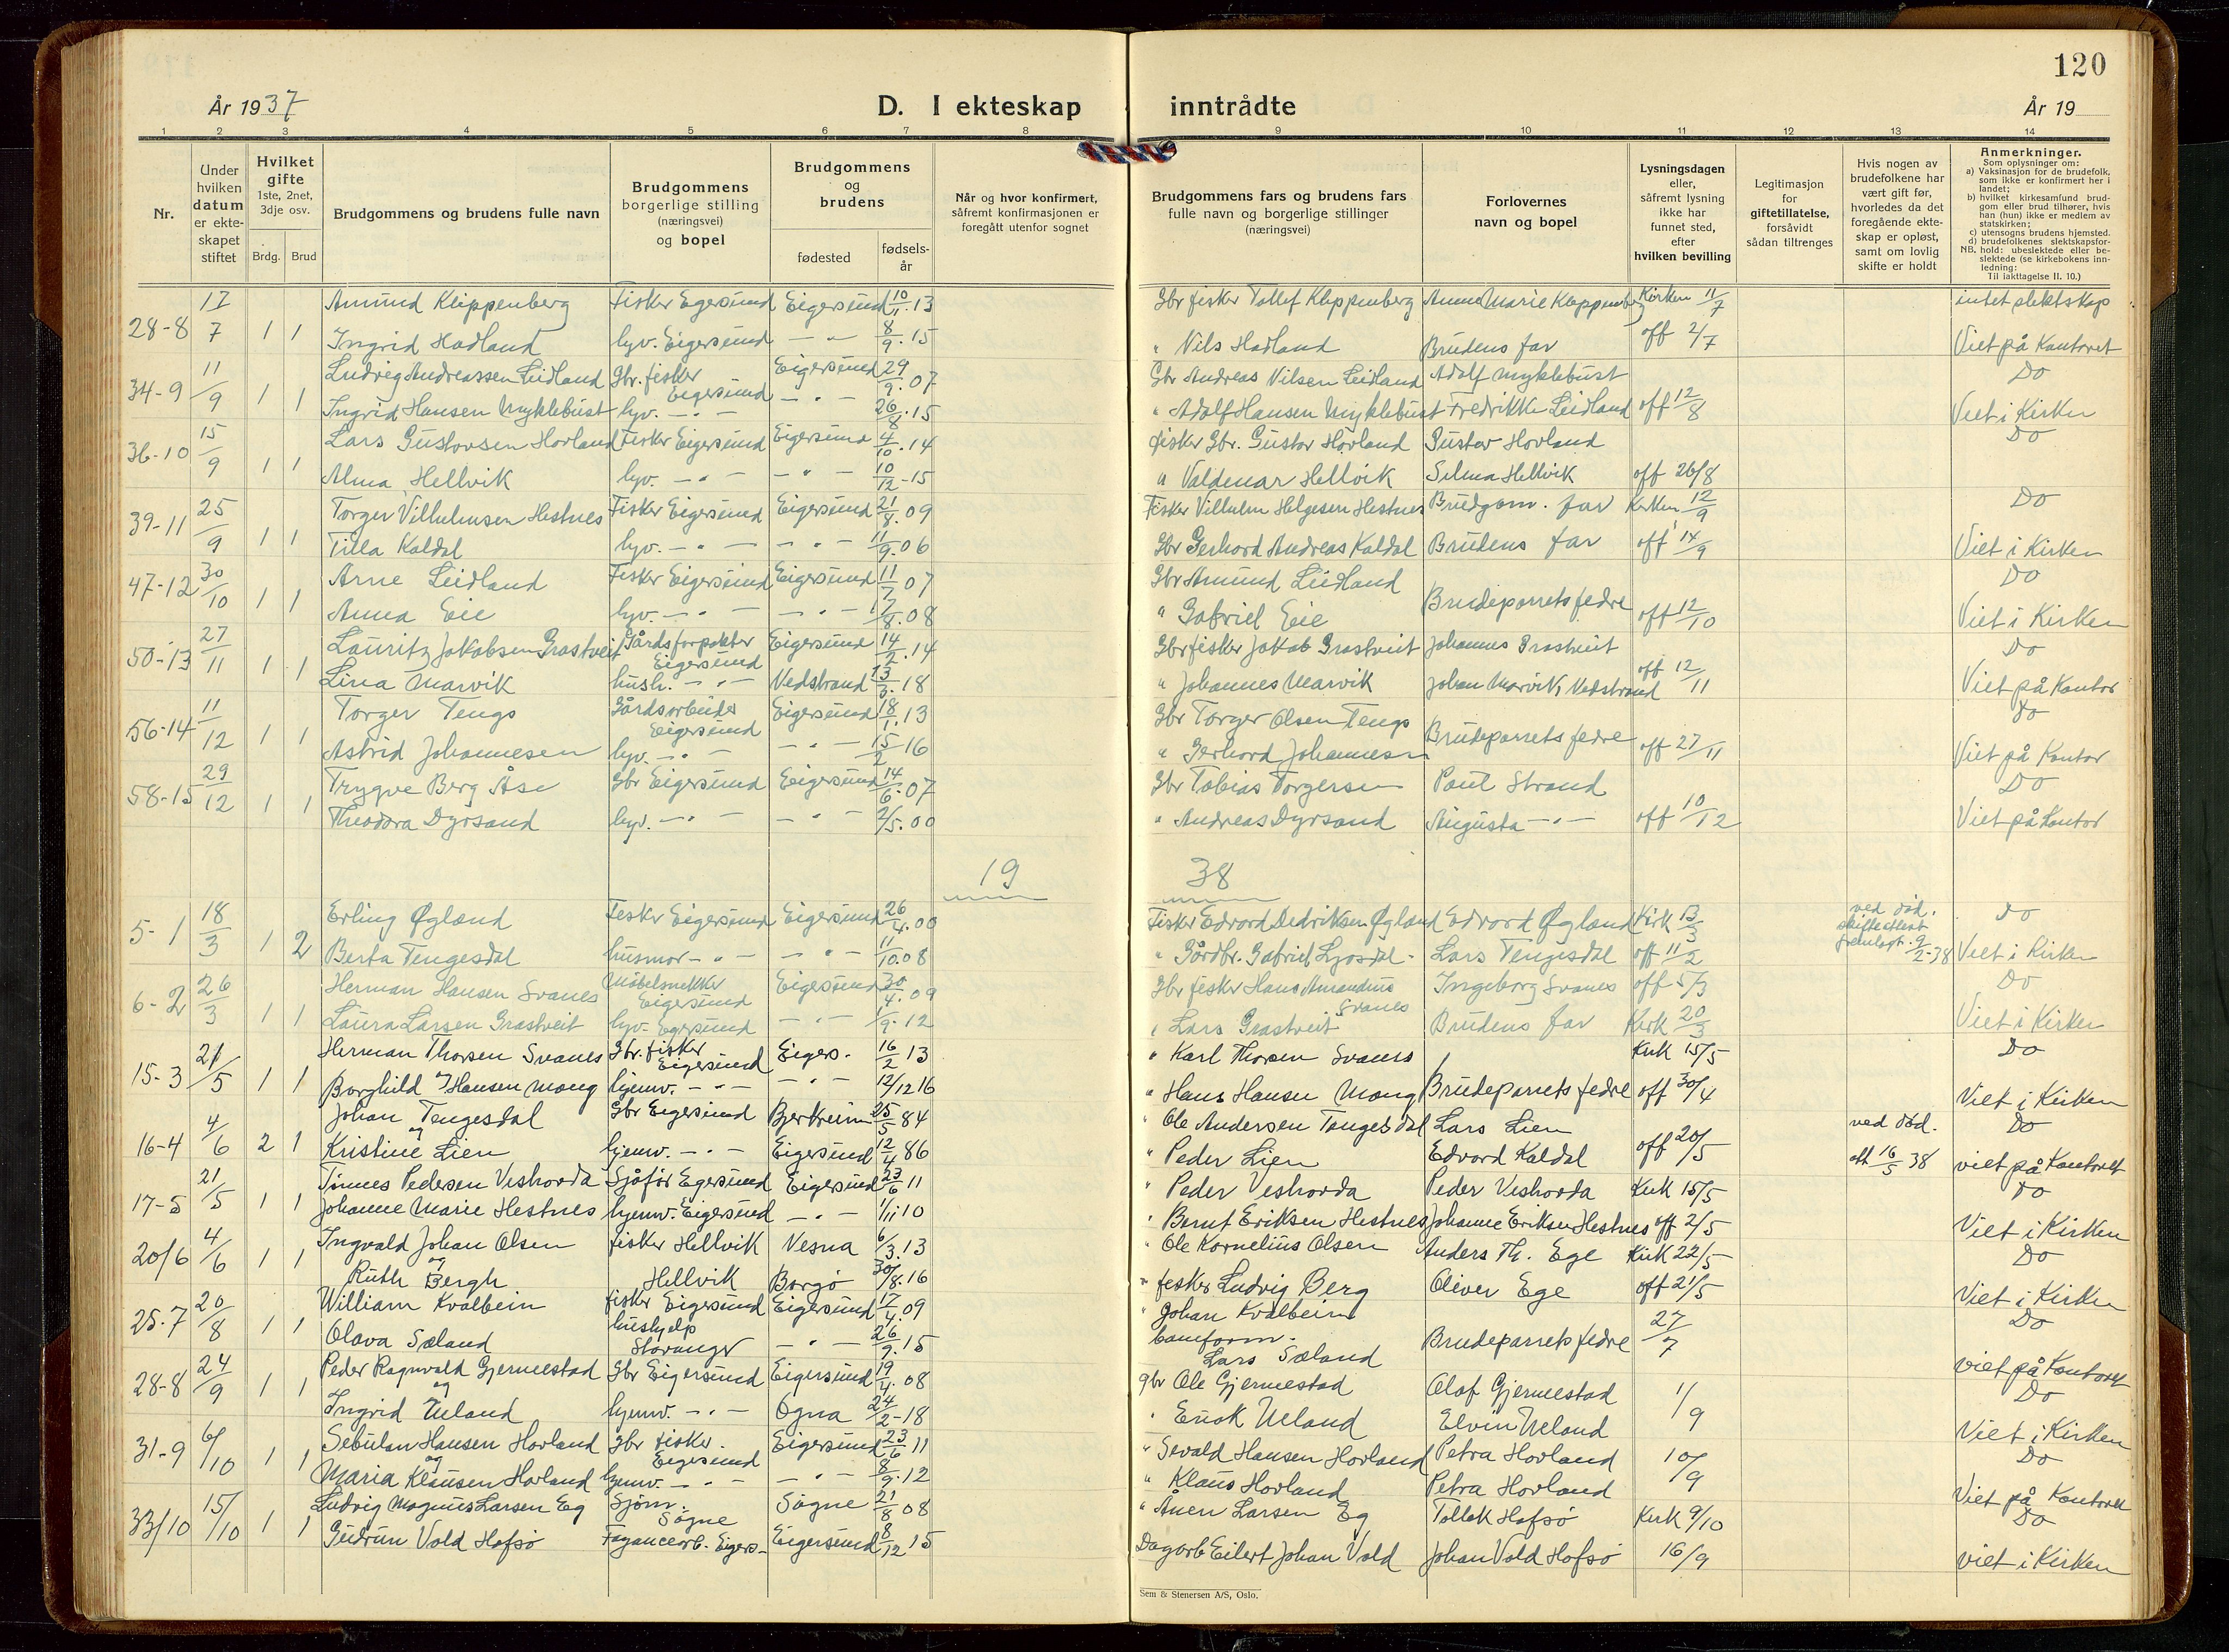 120
År 1937
D. I ekteskap
inntrådte
År 19
1 2 3 4 5 6 7 8 9 10 11 12 13 14
Nr.
Under hvilken datum er ekteskapet stiftet
Hvilket gifte 1ste, 2net, 3dje osv.
Brdg. Brud
Brudgommens og brudens fulle navn
Brudgommens borgerlige stilling (næringsvei) og bopel
Brudgommens og brudens
fødested
fødsels-år
Når og hvor konfirmert, såfremt konfirmasjonen er foregått utenfor sognet
Brudgommens fars og brudens fars fulle navn og borgerlige stillinger (næringsvei)
Forlovernes navn og bopel
Lysningsdagen eller, såfremt lysning ikke har funnet sted, efter hvilken bevilling
Legitimasjon for giftetillatelse, forsåvidt sådan tiltrenges
Hvis nogen av brudefolkene har vært gift før, hvorledes da det foregående ekteskap er opløst, samt om lovlig skifte er holdt
Anmerkninger.
Som oplysninger om:
a) Vaksinasjon for de brudefolk, som ikke er konfirmert her i landet;
b) hvilket kirkesamfund brudgom eller brud tilhører, hvis han (hun) ikke er medlem av statskirken;
c) utensogns brudens hjemsted.
d) brudefolkenes slektskapsforhold: ubeslektede eller beslektede (se kirkebokens innledning:
NB. Til iakttagelse II. 10.)
28-8 17/7 1 1 Amund Kleppenberg Fisker Egersund Eigersund 10/11.13 Gbr fisker Tollef Kleppenberg Anne Marie Kleppenberg Kirken 11/7 intet slektskap
Ingrid Hadland hjv. Eigersund - " - 8/9.15 " Nils Hadland Brudens far off 2/7 Viet på Kontoret
34-9 11/9 1 1 Ludvig Andreassen Leidland Gbr. fisker Eigersund Eigersund 29/9.07 Gbr Andreas Nilsen Leidland Adolf Myklebust Do
Ingrid Hansen Myklebust hjv. - " - - " - 26/8.15 " Adolf Hansen Myklebust Fredrikke Leidland off 12/8 Viet i Kirken
36-10 15/9 1 1 Lars Gustavsen Hovland Fisker Eigersund Eigersund 4/10.14 fisker Gbr. Gustav Hovland Gustav Hovland Do
Alma Hellvik hjv. - " - - " - 10/12-15 " Valdemar Hellvik Selma Hellvik off 26/8
39-11 25/9 1 1 Torger Vilhelmsen Hestnes Fisker Eigersund Eigersund 21/8.09 Fisker Vilhelm Helgesen Hestnes Brudgom. far Kirken 12/9 Do
Tilla Kaldal hjv. - " - - " - 11/9.06 Gbr Gerhard Andreas Kaldal Brudens far off 14/9 Viet i Kirken
47-12 30/10 1 1 Arne Leidland Fisker Eigersund Eigersund 11/7 07 Gbr Amund Leidland Brudeparrets fedre Do
Anna Eie hjv. - " - - " - 17/8.08 " Gabriel Eie off 12/10 Viet i Kirken
50-13 27/11 1 1 Lauritz Jakobsen Grastveit Gårdsforpakter Eigersund Eigersund 14/2.14 Gbr fisker Jakob Grastveit Johannes Grastveit Do
Lina Marvik hush. - " - Vedstrand 13/3.18 " Johannes Marvik Johan Marvik, Vedstrand off 12/11 Viet på Kontor
56-14 11/12 1 1 Torger Tengs Gårdsarbeider Eigersund Eigersund 18/1.13 Gbr Torger Olsen Tengs Brudeparrets fedre Do
Astrid Johannesen hjv. - " - - " - 15/2 16 " Gerhard Johannesen off 27/11 Viet på Kontor
58-15 29/12 1 1 Trygve Berg Åse Gbr Eigersund Eigersund 14/6.07 Gbr Tobias Torgersen Paul Strand Do
Theodora Dyrsand hjv. - " - - " - 2/5.00 " Andreas Dyrsand Augusta - " - off 10/12 Viet på Kontor
19 38
5-1 18/3 1 2 Erling Øgland Fisker Eigersund Eigersund 26/4.00 Fisker Edvard Dedriksen Øgland Edvard Øgland Kirk 13/3 ved død. skifteattest fremlagt. 9/2-38 Do
Berta Tengesdal husmor - " - - " - 11/10.08 " Gårdbr. Gabriel Ljosdal - Lars Tengesdal off 11/2 Viet i Kirken
6-2 26/3 1 1 Herman Hansen Svanes Møbelsnekker Eigersund Eigersund 30/4.09 Gbr fisker Hans Amandus Svanes Ingeborg Svanes off 5/3 Do
Laura Larsen Grastveit hjv. Egersund - " - 1/9.12 " Lars Grastveit Brudens far Kirk 20/3 Viet i Kirken
15-3 21/5 1 1 Herman Thorsen Svanes Gbr. fisker Eigersund Eigers. 16/2 13 " Karl Thorsen Svanes Kirk 15/5 Do
Borghild Hansen Mong hjemv. - " - - " - 12/12 16 " Hans Hansen Mong Brudeparrets fedre off 30/4 Viet i Kirken
16-4 4/6 2 1 Johan Tengesdal Gbr Eigersund Bjerkreim 25/5 84 " Ole Andersen Tengesdal Lars Lien ved død. Do
og Kristine Lien hjemv. - " - Eigersund 12/4 86 " Peder Lien Edvard Kaldal off 20/5 att 16/5 38 viet på Kontoret
17-5 21/5 1 1 Tønnes Pedersen Veshovda Sjåfør Egersund Eigersund 23/6 11 " Peder Veshovda Peder Veshovda Kirk 15/5 Do
Johanne Marie Hestnes hjemv. Eigersund - " - 1/11 10 " Bernt Eriksen Hestnes Johanne Eriksen Hestnes off 2/5 Viet i Kirken
20/6 4/6 1 1 Ingvald Johan Olsen fisker Hellvik Vesna 6/3.13 " Ole Kornelius Olsen Anders Th. Ege Kirk 22/5 Do
og Ruth Bergh Hellvik Borgø 30/8.16 " fisker Ludvig Berg Oliver Ege off 21/5 Viet i Kirken
25.7 20/8 1 1 William Kvalbein fisker Eigersund Eigersund 17/4.09 " Johan Kvalbein Brudeparrets fedre 27/7 Do
Olava Sæland hushjelp Stavanger - " - 26/9.15 baneform. Lars Sæland viet på Kontoret
28-8 24/9 1 1 Peder Ragnvald Gjermestad Gbr Eigersund Eigersund 19/4.08 gbr Ole Gjermestad Olaf Gjermestad 1/9 Do
og Ingrid Ueland hjemv. - " - Ogna 24/2-18 " Enok Ueland Elvin Ueland Viet i Kirken
31-9 6/10 1 1 Sebulon Hansen Hovland Gbr fisker. Eigersund Eigersund 23/6 11 " Sevald Hansen Hovland Petra Hovland 10/9 Do
og Maria Klausen Hovland hjemv. - " - - " - 8/9.12 " Klaus Hovland Petra Hovland Viet på Kontoret
33/10 15/10 1 1 Ludvig Magnus Larsen Eg Sjøm. Søgne Søgne 21/8 08 " Ånen Larsen Eg Tollak Hafsø Kirk 9/10 Do
Gudrun Vold Hafsø Fayancearb. Eigers- Eigersund 8/12 15 Dagarb Eilert Johan Vold Johan Vold Hafsø 16/9 viet i Kirken
Sem & Stenersen A/S, Oslo.